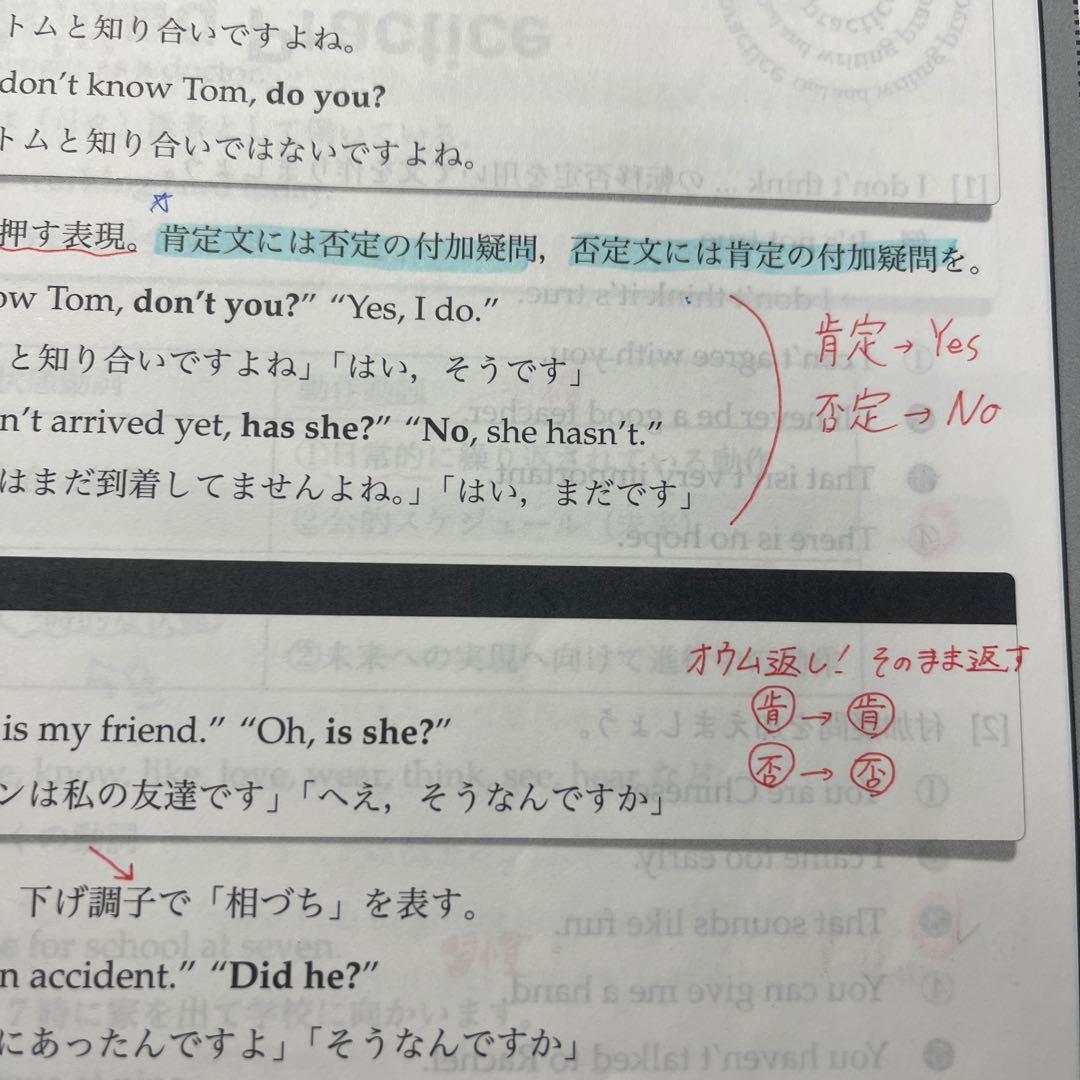 トムと知り合いですよね。
don't know Tom, do you?
トムと知り合いではないですよね。
押す表現。肯定文には否定の付加疑問，否定文には肯定の付加疑問を。
ow Tom, don't you?” “Yes, I do.”
と知り合いですよね」「はい，そうです」
肯定→Yes
否定→No
n't arrived yet, has she?” “No, she hasn't.”
はまだ到着してませんよね。」「はい，まだです」
オウム返し! そのまま返す
肯→肯
否→否
is my friend.” “Oh, is she?”
ンは私の友達です」「へえ，そうなんですか」
下げ調子で「相づち」を表す。
n accident.” “Did he?”
にあったんですよ」「そうなんですか」